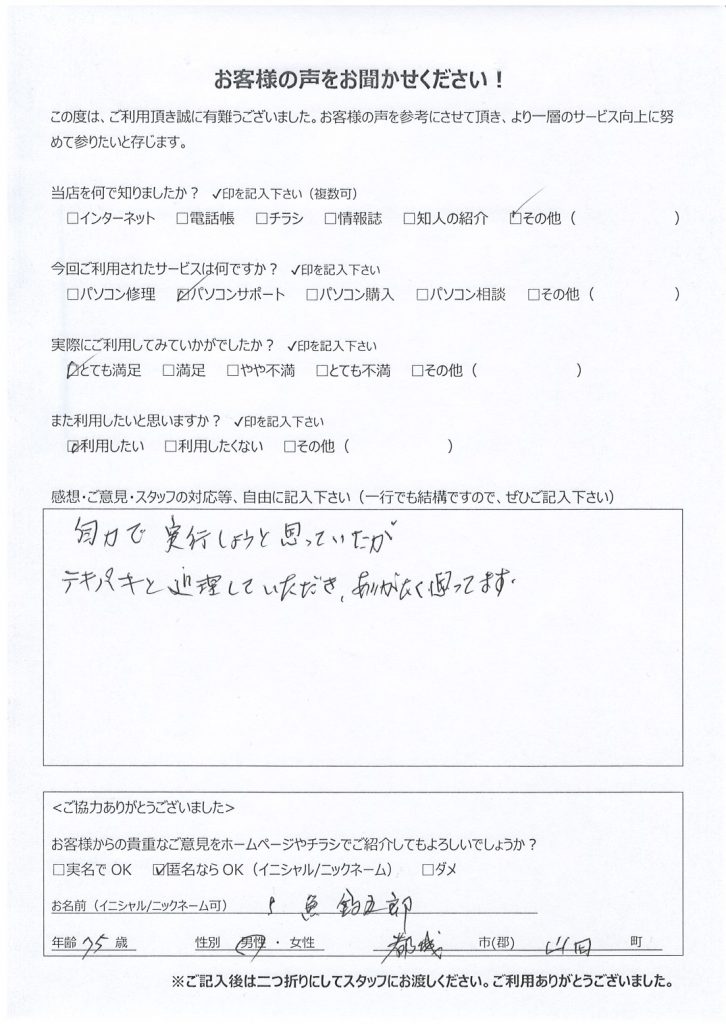 お客様の声をお聞かせください！
この度は、ご利用頂き誠に有難うございました。お客様の声を参考にさせて頂き、より一層のサービス向上に努
めて参りたいと存じます。
当店を何で知りましたか？ ✓印を記入下さい（複数可）
□インターネット □電話帳 □チラシ □情報誌 □知人の紹介 ☑その他（ ）
今回ご利用されたサービスは何ですか？ ✓印を記入下さい
□パソコン修理 ☑パソコンサポート □パソコン購入 □パソコン相談 □その他（ ）
実際にご利用してみていかがでしたか？ ✓印を記入下さい
☑とても満足 □満足 □やや不満 □とても不満 □その他（ ）
また利用したいと思いますか？ ✓印を記入下さい
☑利用したい □利用したくない □その他（ ）
感想・ご意見・スタッフの対応等、自由に記入下さい（一行でも結構ですので、ぜひご記入下さい）
自力で実行しようと思っていたが
テキパキと処理していただき、ありがたく思ってます．
<ご協力ありがとうございました>
お客様からの貴重なご意見をホームページやチラシでご紹介してもよろしいでしょうか？
□実名でOK ☑匿名ならOK（イニシャル/ニックネーム） □ダメ
お名前（イニシャル/ニックネーム可） 魚 釣五郎
年齢 75 歳 性別 男性・女性 都城 市(郡) 山田 町
※ご記入後は二つ折りにしてスタッフにお渡しください。ご利用ありがとうございました。